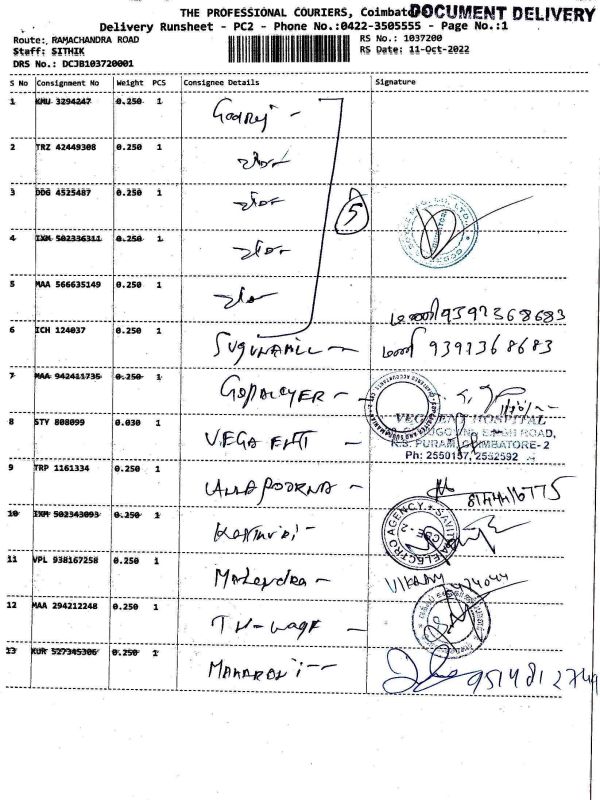 THE PROFESSIONAL COURIERS, Coimbato
DOCUMENT DELIVERY
Delivery Runsheet - PC2 - Phone No.:0422-3505555 - Page No.:1
Route: RAMACHANDRA ROAD
RS No.: 1037200
Staff: SITHIK
RS Date: 11-Oct-2022
DRS No.: DCJB103720001
S No Consignment No Weight PCS Consignee Details Signature
1 KMU 3294247 0.250 1 Godrej -
2 TRZ 42449308 0.250 1
3 DDG 4525487 0.250 1
5
4 IXM 502336311 0.250 1
5 MAA 566635149 0.250 1 மணி 9392368683
6 ICH 124037 0.250 1 SUGUNAMILL - மணி 9392368683
7 MAA 942411735 0.250 1 GOPALIYER -
8 STY 808099 0.030 1 VEGA ENT -
VEGA ENT HOSPITAL
ROAD,
R.S. PURAM, COIMBATORE-2
Ph: 2550157, 2552592
9 TRP 1161334 0.250 1 ANNAPOORNA -
10 IXM 502343093 0.250 1
ELECTRO AGENCY
CBE - 2
11 VPL 938167258 0.250 1 Mahendra -
12 MAA 294212248 0.250 1
13 KUR 527345306 0.250 1 MAHARANI - 9514812749